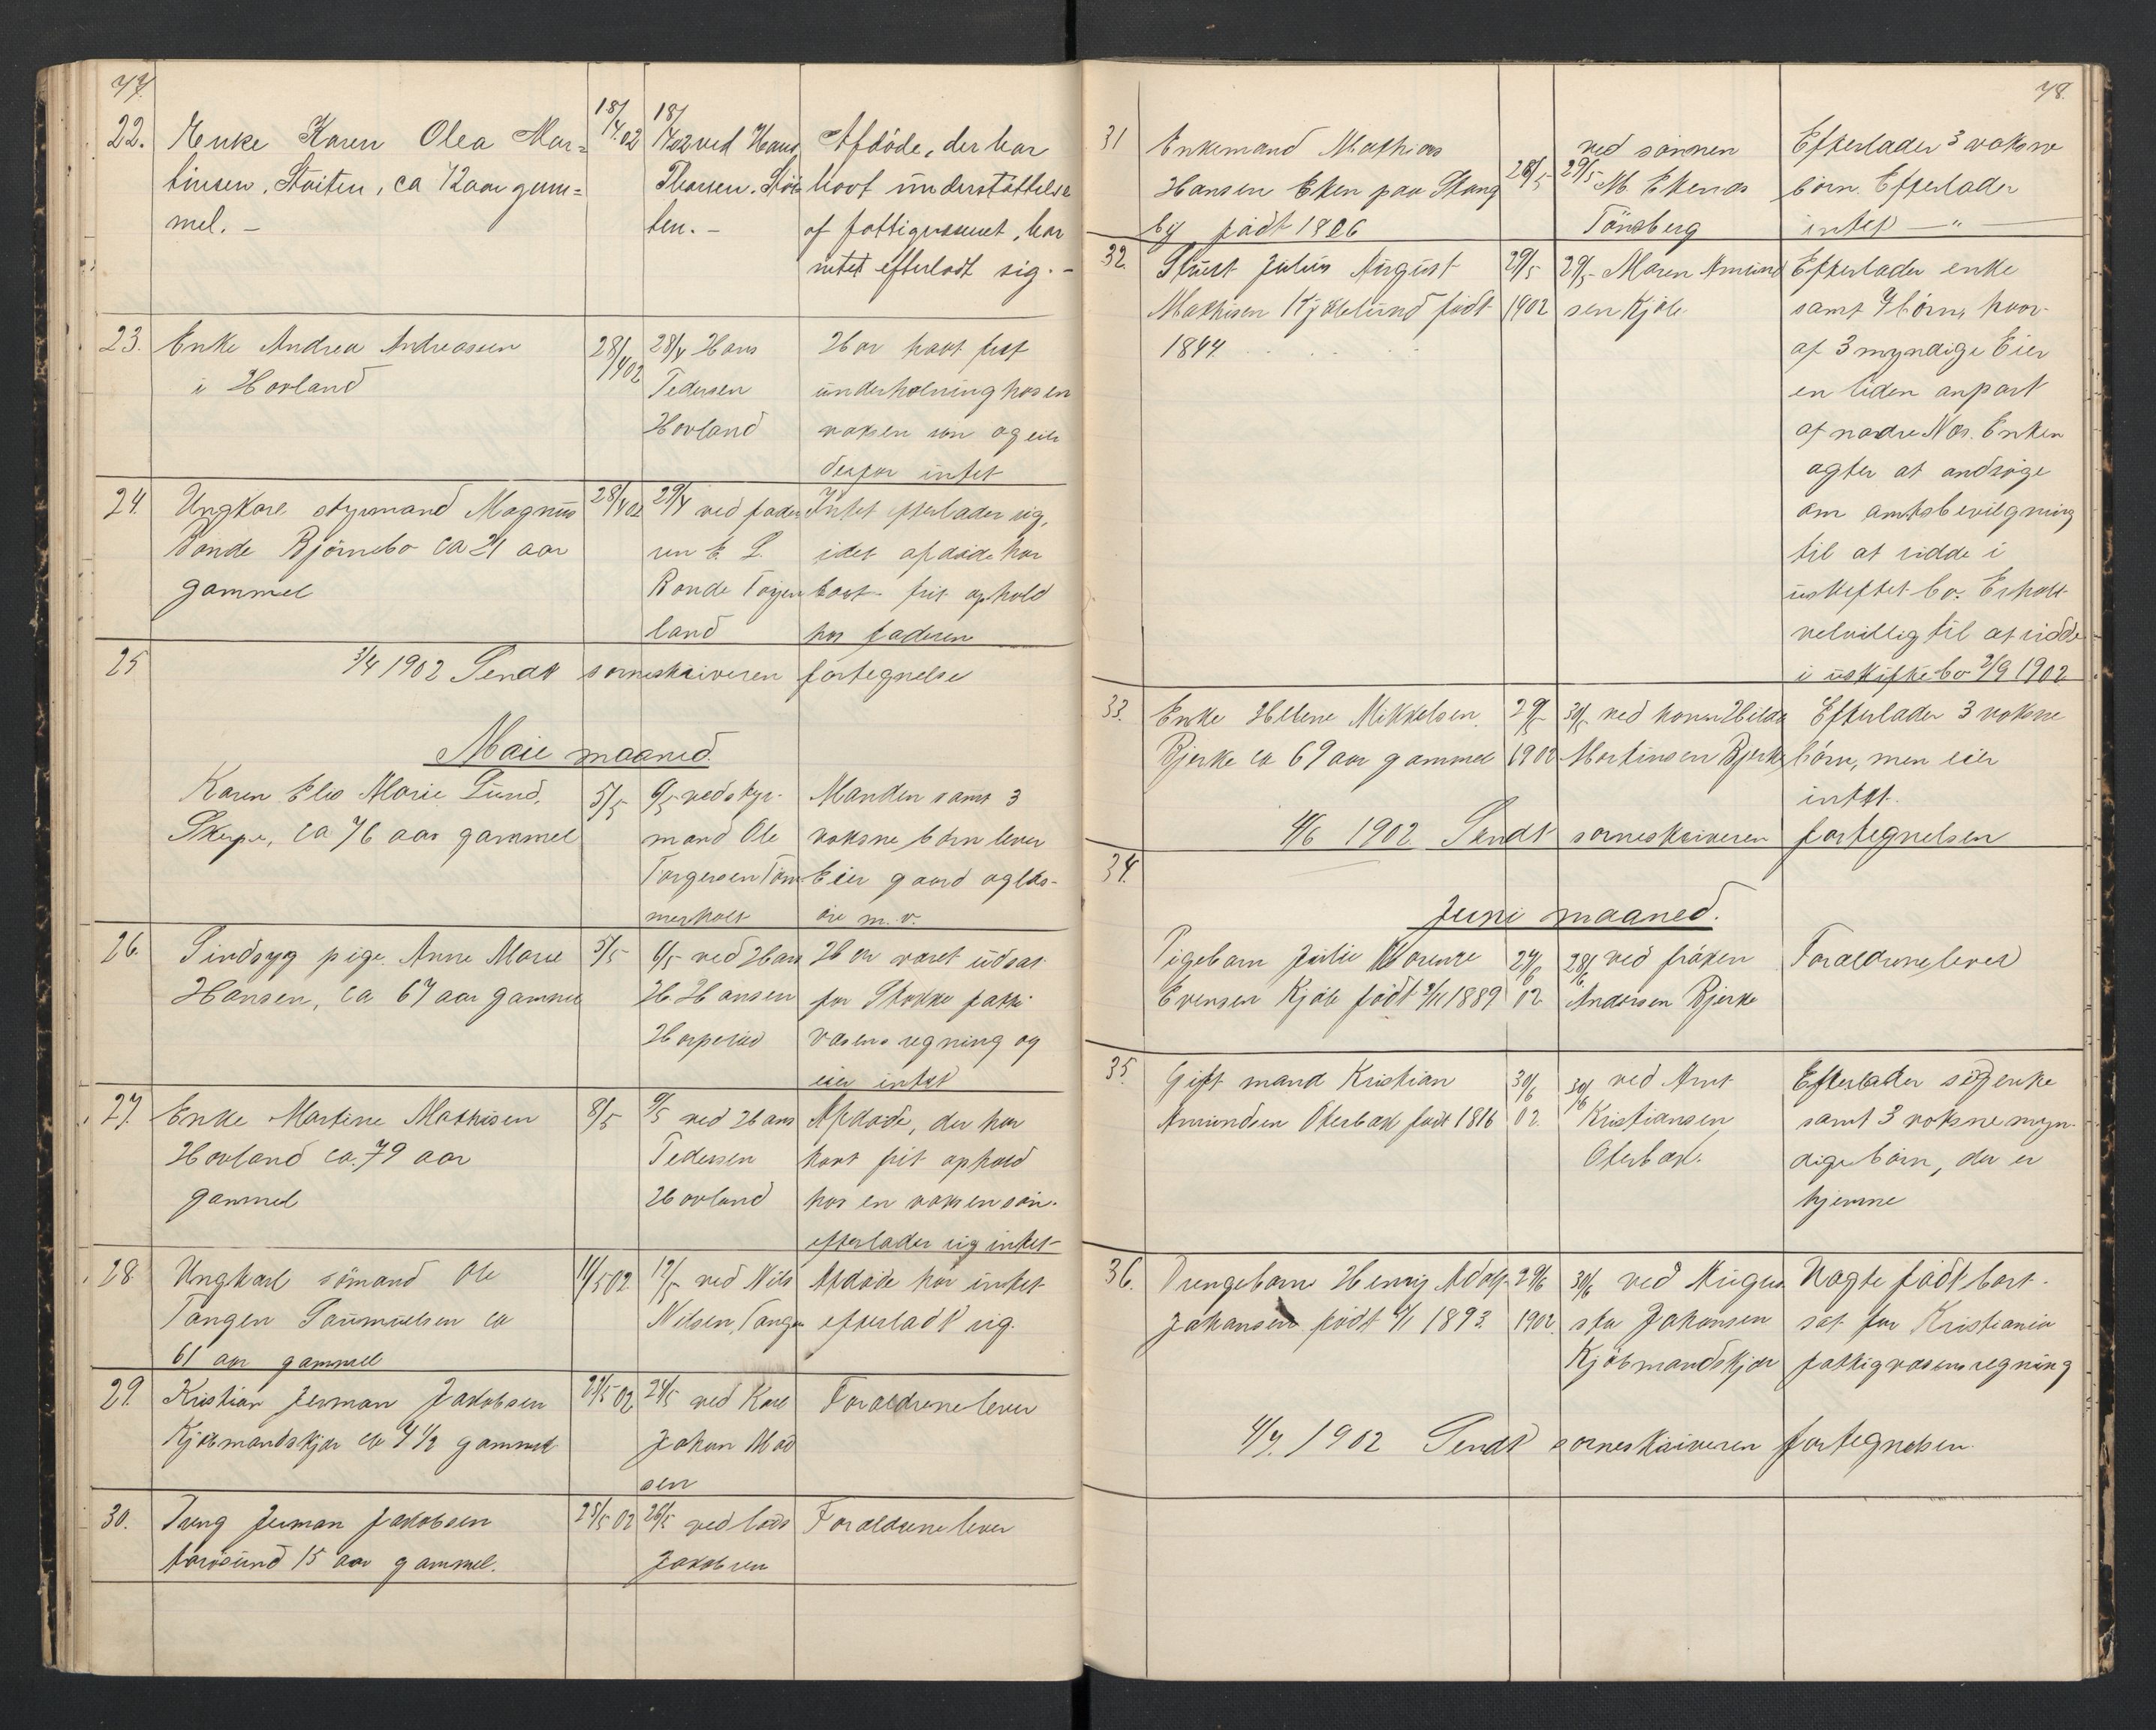 77.
22. Enke Karen Olea Mar=
tinsen, Støiten, ca 72 aar gam=
mel. -
18/4.02
18/4 02 ved Hans
Thorsen. Støi
ten. -
Afdöde, der har
havt understöttelse
af fattigvæsenet, har
intet efterladt sig. -
23. Enke Andrea Andreassen
i Hovland
28/4 02
28/4 Hans
Pedersen
Hovland
Har havt frit
underholdning hos en
voksen sön og eier
derfor intet
24. Ungkarl styrmand Magnus
Bonde Björnebo ca 21 aar
gammel
28/4 02
29/4 ved fade
ren E. L.
Bonde
land
Intet efterlader sig,
idet afdöde har
havt frit ophold
hos faderen
25 3/4 1902 Sendt sorenskriveren fortegnelse
Maie maaned.
Karen Elis Marie Lund,
ca 76 aar gammel
5/5
6/5 ved styr-
mand Ole
Torgersen Töm
merholt
Manden samt 3
voksne børn lever
Eier gaard og løs-
øre m.v.
26. Sindsyg pige Anne Marie
Hansen, ca 67 aar gammel
5/5
6/5 ved Hans
H. Hansen
Horperöd
Har været udsat
for Stokke fatti-
væsens regning og
eier intet
27. Enke Martine Mathisen
Hovland ca. 79 aar
gammel
8/5
9/5 ved Hans
Pedersen
Hovland
Afdöde, der har
havt frit ophold
hos en voksen sön.
efterlader sig intet
28. Ungkarl sömand Ole
Tangen Samuelsen ca
61 aar gammel
11/5 02
12/5 ved Nils
Nilsen, Tangen
Afdöde har intet
efterladt sig.
29. Kristian Jerman Jakobsen
Kjöbmandskjær ca 4 1/2 gammel
21/5 02
24/5 ved Karl
Johan Mad
sen
Forældrene lever
30. Dreng Jerman Jakobsen
15 aar gammel.
25/5 02
26/5 ved lods
Jakobsen
Forældrene lever
78.
31 Enkemand Mathias
Hansen Eken paa Stang
by födt 1826
28/5
ved sönnen
29/5 M. Ekenæs
Tönsberg
Efterlader 3 voksne
börn. Efterlader
intet - " -
32. Skust Julius August
Mathisen Kjøbelund födt
1844.
29/5
1902
29/5 Maren Amund
sen Kjöle.
Efterlader enke
samt 7 börn, hvor-
af 3 myndige Eier
en liden anpart
af nedre Nes. Enken
agter at andsøge
om amtsbevilgning
til at sidde i
uskiftet bo. Erholt
velvillig til at sidde
i uskifte bo 2/9 1902
33. Enke Helene Mikkelsen
Bjerke ca 69 aar gammel
29/5
1902
30/5 ved konen Hilda
Martinsen Bjerke
Efterlader 3 voksne
börn, men eier
intet.
4/6 1902. Sendt sorenskriveren fortegnelsen
34.
Juni maaned.
Pigebarn Julie
Evensen Kjöle födt 2/11 1889
27/6
02
28/6 ved fröken
Andersen Bjerke
Forældrene lever
35. Gift mand Kristian
Amundsen Oterbæk födt 1816
30/6
02.
30/6 ved Arnt
Kristiansen
Oterbæk.
Efterlader sig enke
samt 3 voksne myn-
dige börn, der er
hjemme
36. Drengebarn Henrij Adolf
Johansen födt 4/1 1893.
29/6
1902.
30/6 ved Augus
sta Johansen
Kjöbmandskjær
Uægte födt bort-
sat for Kristiania
fattigvæsens regning
4/7. 1902 Sendt sorenskriveren fortegnelsen.